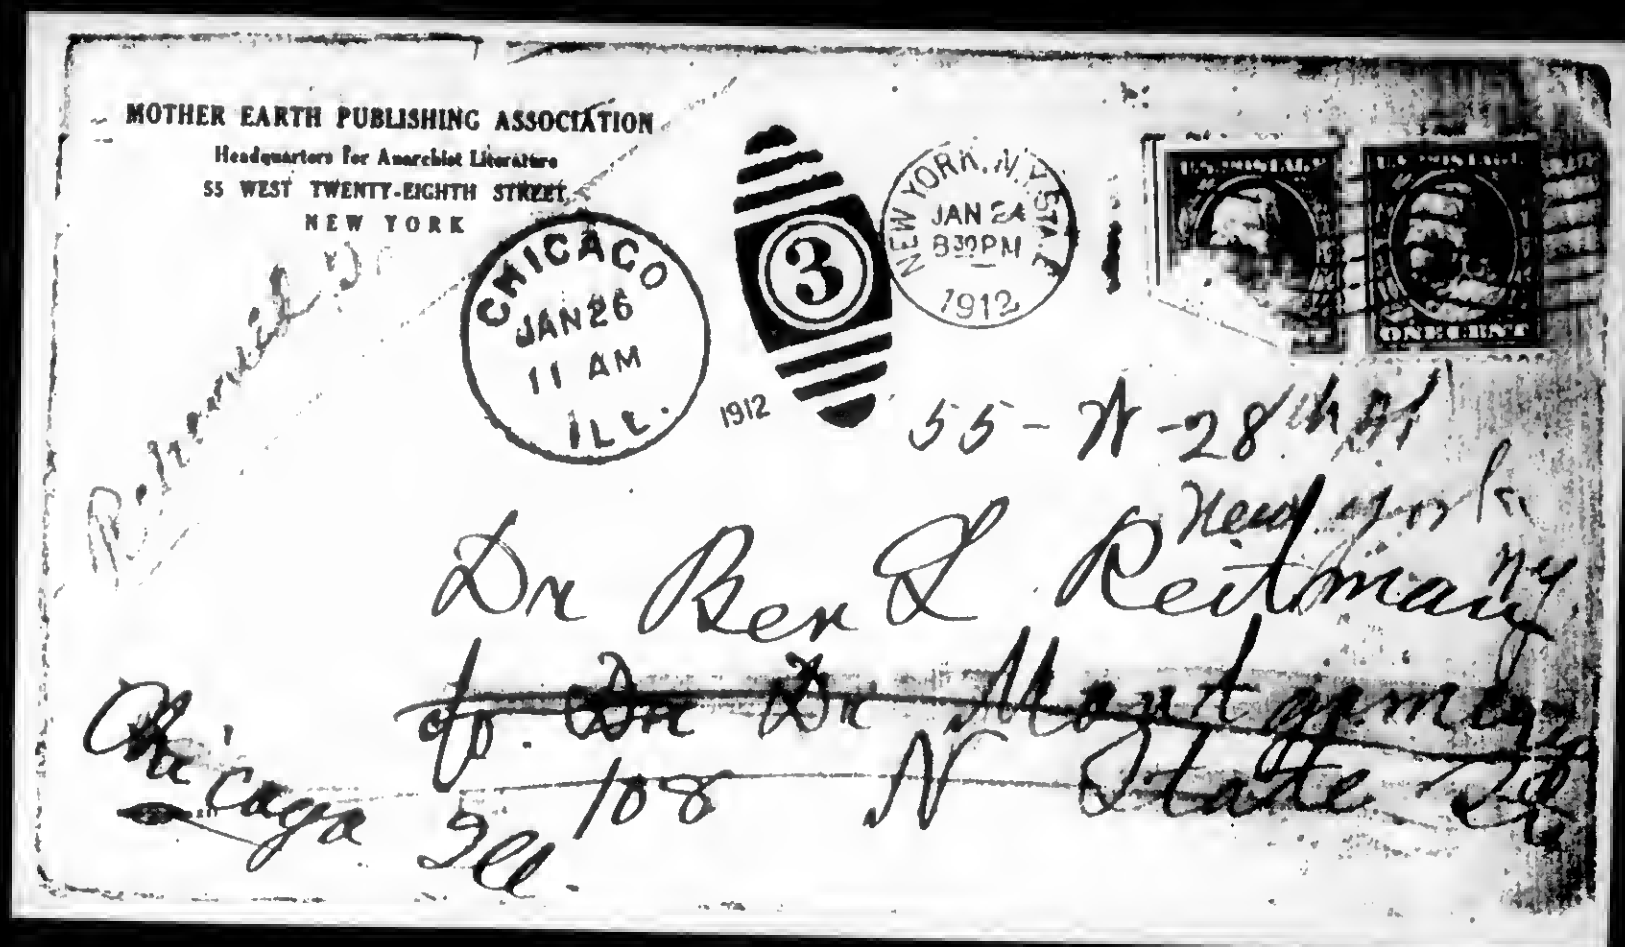 MOTHER EARTH PUBLISHING ASSOCIATION
Headquarters for Anarchist Literature
55 WEST TWENTY-EIGHTH STREET
NEW YORK
CHICAGO
JAN 26
11 AM
ILL.
1912
3
NEW YORK, N.Y. STA.
JAN 24
830PM
1912
U.S. POSTAGE
U.S. POSTAGE
ONE CENT
55 - W - 28th St
New York
NY
Dr Ben L Reitman
c/o. Dr Dr Montgomery
108 N State St
Chicago Ill.